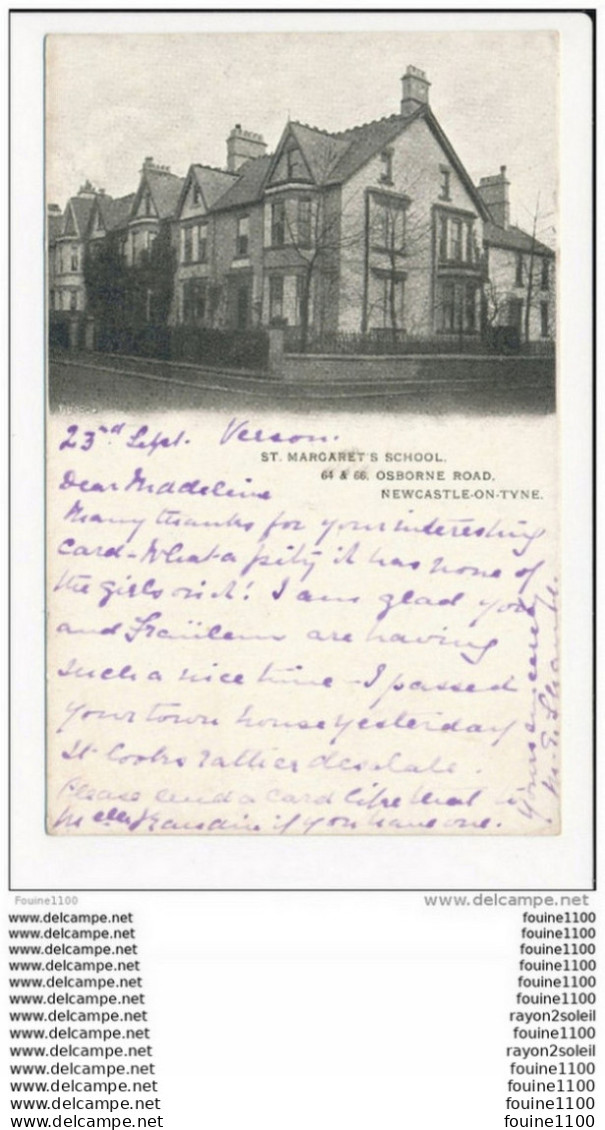 23rd Sept. Verson.
ST. MARGARET'S SCHOOL,
64 & 66, OSBORNE ROAD,
NEWCASTLE-ON-TYNE.
Dear Madeline
Many thanks for your interesting
card - What a pity it has none of
the girls on it! I am glad you
and Fraülein are having
such a nice time - I passed
your town house yesterday
it looks rather desolate.
Please send a card like that to
Melle if you have one.
Yours sincerely
M. E.
Fouine1100 www.delcampe.net
www.delcampe.net fouine1100
www.delcampe.net fouine1100
www.delcampe.net fouine1100
www.delcampe.net fouine1100
www.delcampe.net fouine1100
www.delcampe.net fouine1100
www.delcampe.net rayon2soleil
www.delcampe.net fouine1100
www.delcampe.net rayon2soleil
www.delcampe.net fouine1100
www.delcampe.net fouine1100
www.delcampe.net fouine1100
www.delcampe.net fouine1100